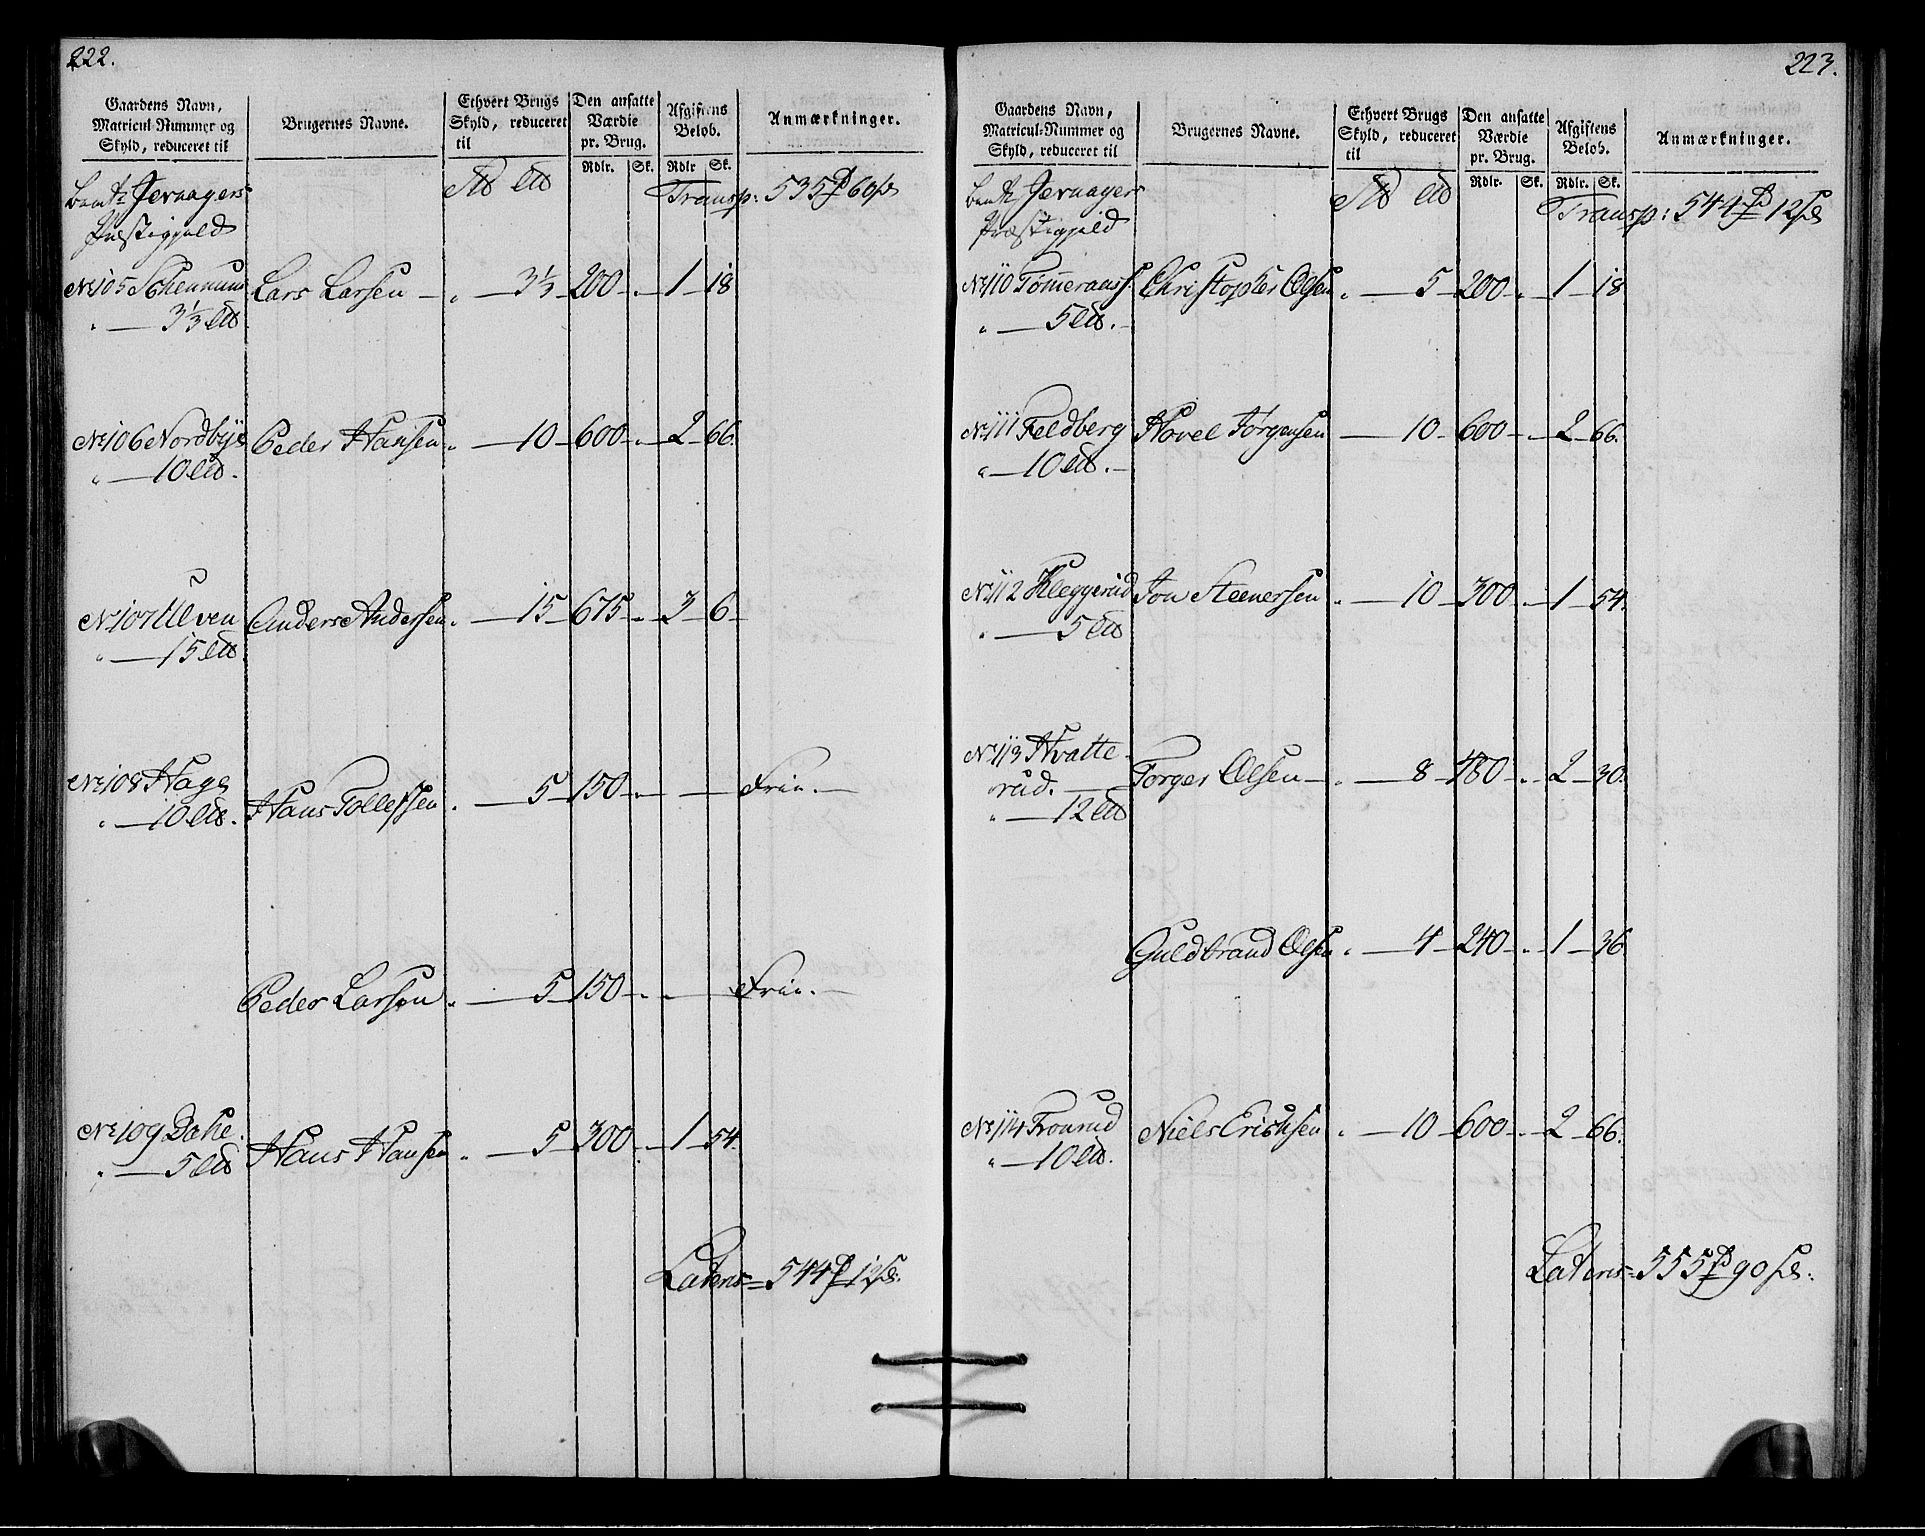 222.
Gaardens Navn,
Matricul-Nummer og
Skyld, reduceret til
Brugernes Navne.
Ethvert Brugs
Skyld, reduceret
til
Den ansatte
Værdie
pr. Brug.
Rdlr. Sk.
Afgiftens
Beløb.
Rdlr Sk.
Anmærkninger.
Jevnagers
Præstigjæld
Transp: 535 60
No 105 Schennum Lars Larsen - " - 3⅓ - 200 - " - 1 - 18
" - 3⅓
No 106 Nordbye Peder Hansen " - 10 - 600 - " - 2 - 66.
" - 10
No 107 Ulven Anders Andersen " - 15 - 675 - " - 3 - 6 -
" - 15
No 108 Hage Hans Tollefsen " - 5 - 150 - " - - Frie. -
" - 10
Peder Larsen " - 5 - 150 - " - - Frie. -
No 109 Dahl Hans Hansen " - 5 - 300 - " - 1 - 54.
" - 5
Latens = 544 12
223.
Gaardens Navn,
Matricul-Nummer og
Skyld, reduceret til
Brugernes Navne.
Ethvert Brugs
Skyld, reduceret
til
Den ansatte
Værdie
pr. Brug.
Rdlr. Sk.
Afgiftens
Beløb.
Rdlr. Sk.
Anmærkninger.
Jevnagers
Præstigjæld
Transp: 544 12
No 110 Christopher Olsen " - 5 - 200 - " - 1 - 18
" - 5
No 111 Feldberg Hovel Jørgensen - 10 - 600 - " - 2 - 66.
" - 10
No 112 Kleggerud Jon Steenersen " - 10 - 300 - " - 1 - 54.
" - 5
No 113 Hvatte-
rud. - Torger Olsen - " - 8 - 480 - " - 2 - 30.
" - 12
Guldbrand Olsen " - 4 - 240 - " - 1 - 36
No 114 Tronrud Niels Erichsen " - 10 - 600 - " - 2 - 66.
" - 10
Latens = 555 90